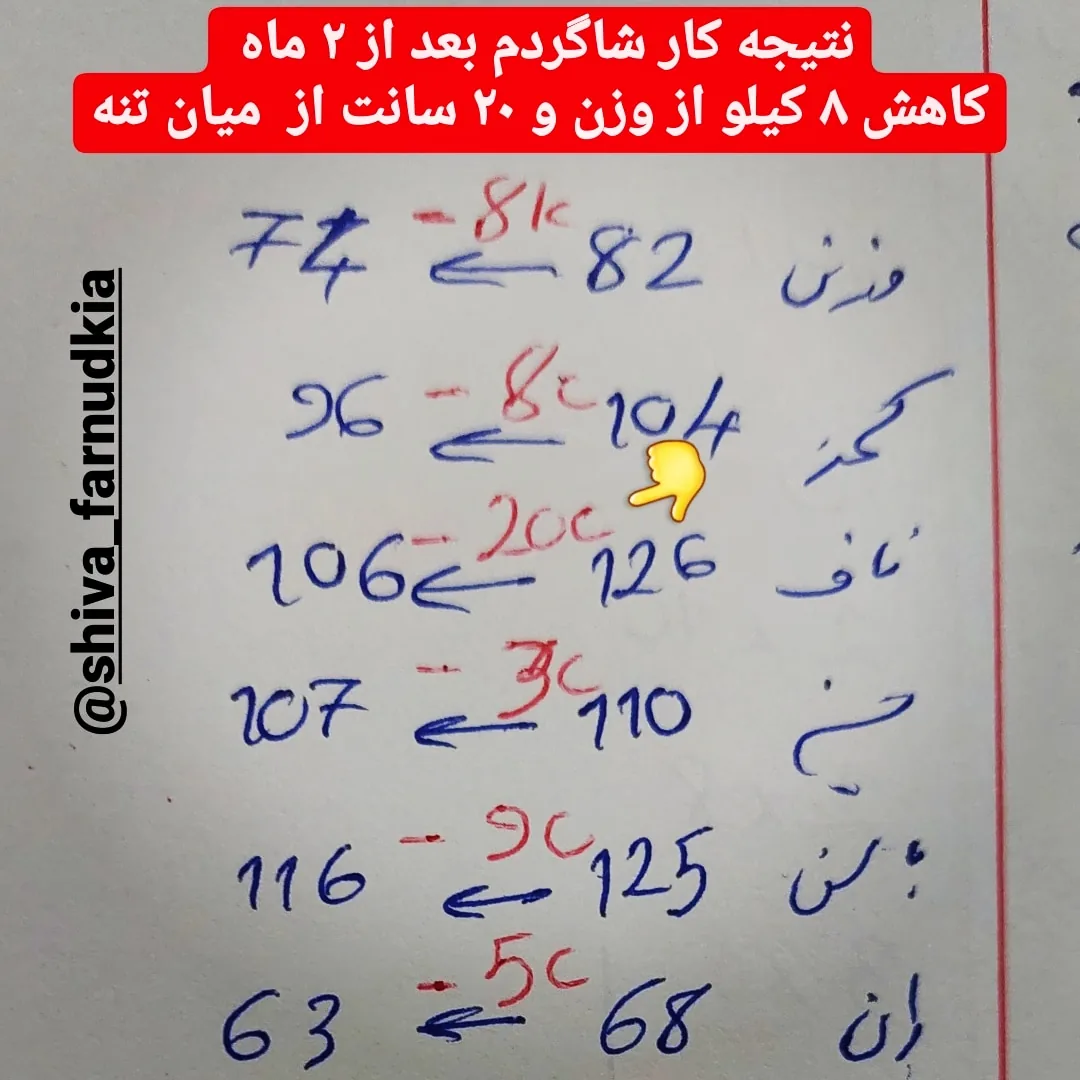 نتیجه کار شاگردم بعد از ۲ ماه
کاهش ۸ کیلو از وزن و ۲۰ سانت از میان تنه
وزن 82 ← 74 - 8k
کمر 104 ← 96 - 8c
ناف 126 ← 106 - 20c
110 ← 107 - 3c
باسن 125 ← 116 - 9c
ران 68 ← 63 - 5c
@shiva_farnudkia